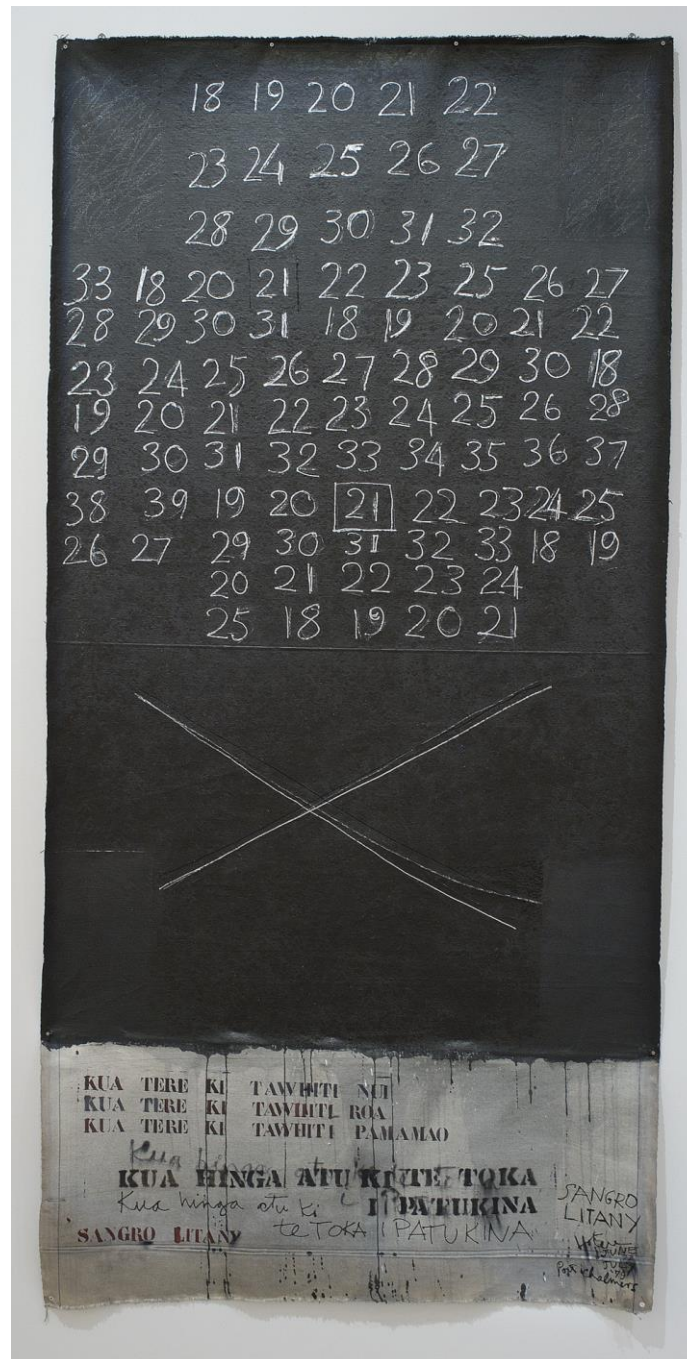 18 19 20 21 22
23 24 25 26 27
28 29 30 31 32
33 18 20 21 22 23 25 26 27
28 29 30 31 18 19 20 21 22
23 24 25 26 27 28 29 30 18
19 20 21 22 23 24 25 26 28
29 30 31 32 33 34 35 36 37
38 39 19 20 21 22 23 24 25
26 27 29 30 31 32 33 18 19
20 21 22 23 24
25 18 19 20 21
KUA TERE KI TAWHITI NUI
KUA TERE KI TAWHITI ROA
KUA TERE KI TAWHITI PAMAMAO
Kua hinga
KUA HINGA ATU KI TE TOKA
I PATUKINA
Kua hinga atu ki
te TOKA I PATUKINA
SANGRO LITANY
SANGRO
LITANY
Hotere
JUNE
Port Chalmers